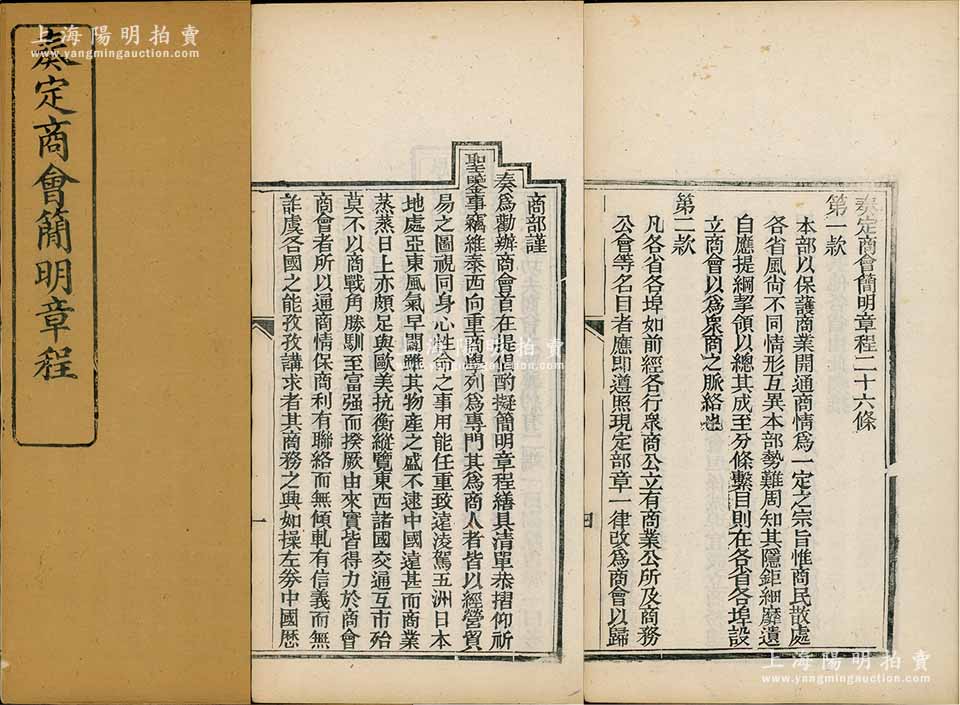 上海陽明拍賣
www.yangmingauction.com
奏定商會簡明章程
上海陽明拍賣
www.yangmingauction.com
商部謹
奏爲勸辦商會首在提倡酌擬簡明章程繕具清單恭摺仰祈
聖鑒事竊維泰西向重商學列爲專門其爲商人者皆以經營貿
易之圖視同身心性命之事用能任重致遠淩駕五洲日本
地處亞東風氣早闢雖其物產之盛不逮中國遠甚而商業
蒸蒸日上亦頗足與歐美抗衡縱覽東西諸國交通互市殆
莫不以商戰角勝馴至富强而揆厥由來實皆得力於商會
商會者所以通商情保商利有聯絡而無傾軋有信義而無
詐虞各國之能孜孜講求者其商務之興如操左券中國歷
一
奏定商會簡明章程二十六條
第一款
本部以保護商業開通商情爲一定之宗旨惟商民散處
各省風尚不同情形互異本部勢難周知其隱鉅細靡遺
自應提綱挈領以總其成至分條繫目則在各省各埠設
立商會以爲衆商之脈絡也
第二款
凡各省各埠如前經各行衆商公立有商業公所及商務
公會等名目者應即遵照現定部章一律改爲商會以歸
四
上海陽明拍賣
www.yangmingauction.com